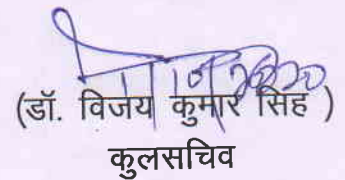 (डॉ. विजय कुमार सिंह )
कुलसचिव